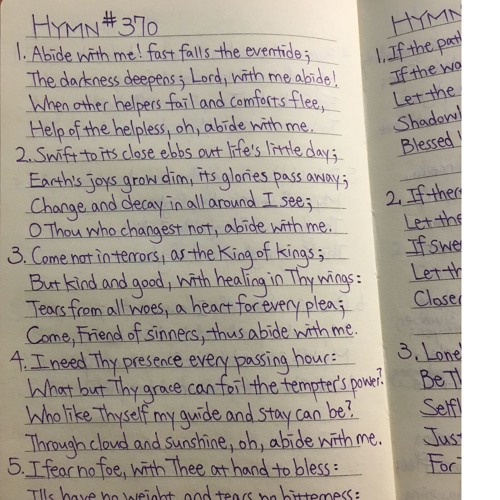 HYMN #370
1. Abide with me! fast falls the eventide;
The darkness deepens; Lord, with me abide!
When other helpers fail and comforts flee,
Help of the helpless, oh, abide with me.
2. Swift to its close ebbs out life's little day;
Earth's joys grow dim, its glories pass away;
Change and decay in all around I see;
O Thou who changest not, abide with me.
3. Come not in terrors, as the King of kings;
But kind and good, with healing in Thy wings:
Tears from all woes, a heart for every plea;
Come, Friend of sinners, thus abide with me.
4. I need Thy presence every passing hour:
What but Thy grace can foil the tempter's power?
Who like Thyself my guide and stay can be?
Through cloud and sunshine, oh, abide with me.
5. I fear no foe, with Thee at hand to bless:
Ills have no weight, and tears no bitterness:
HYMN
1. If the
If the
Let the
Blessed
2. If
Let the
If
Let
Closer
3.
Be
For